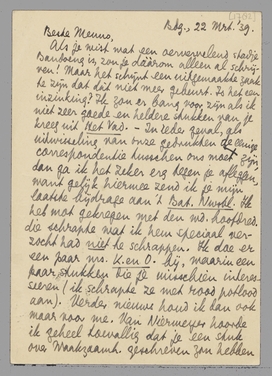 Bdg., 22 Mrt. '39.
Beste Menno,
Als je wist wat een oervervelend stadje
Bandoeng is, zou je daarom alleen al schrij-
ven! Maar het schijnt een uitgemaakte zaak
te zijn dat dit niet meer gebeurt. Is het een
inzinking? Ik zou er bang voor zijn als ik
niet zeer goede en heldere stukken van je
kreeg uit Het Vad. - In ieder geval, als
uitwisseling van onze gedrukten de eenige
correspondentie tusschen ons moet zijn,
dan ga ik het zeker erg tegen je afleggen,
want gelijk hiermee zend ik je mijn
laatste bijdrage aan 't Bat. Nwsbl. Ik
het mot gekregen met den wd. hoofdred.
die schrapte wat ik hem speciaal ver-
zocht had niet te schrappen. Ik doe er
een paar nrs. K. en O. bij, waarin een
paar stukken die je misschien interes-
seeren (ik schrapte ze met rood potlood
aan). Verder nieuws houd ik dan ook
maar voor me. Van Niermeyer hoorde
ik geheel toevallig dat je een stuk
over geschreven zou hebben